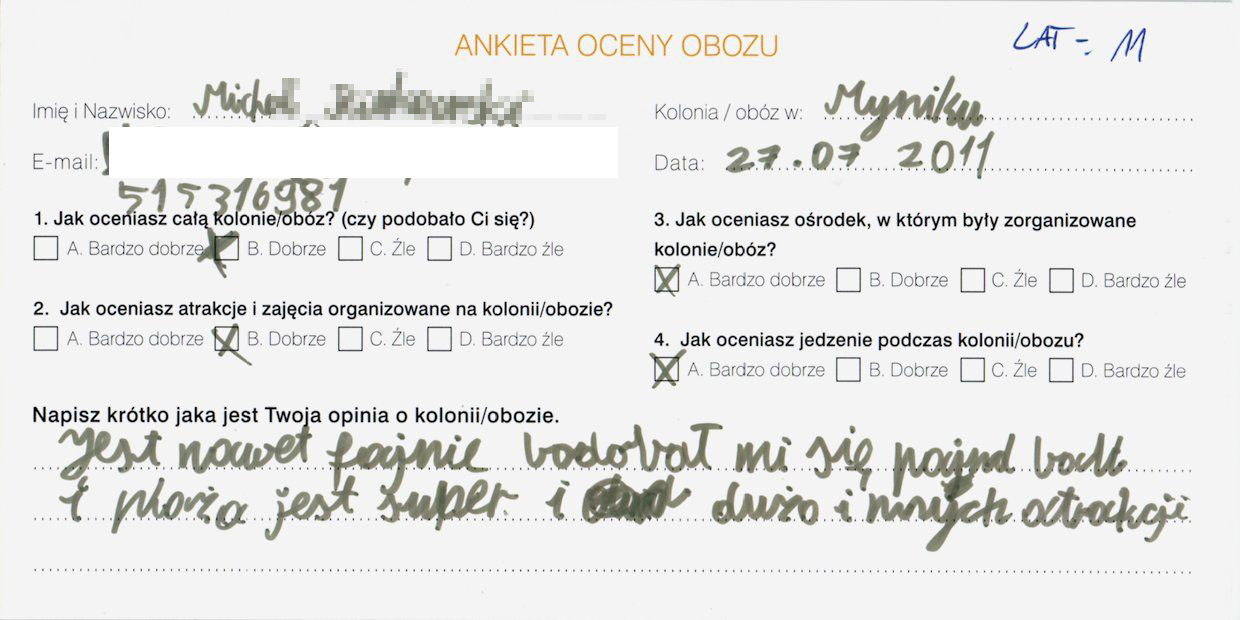 ANKIETA OCENY OBOZU
LAT - 11
Imię i Nazwisko: Michał
Kolonia / obóz w: Myniku
E-mail:
Data: 27.07 2011
515316981
1. Jak oceniasz całą kolonie/obóz? (czy podobało Ci się?)
A. Bardzo dobrze B. Dobrze C. Źle D. Bardzo źle
2. Jak oceniasz atrakcje i zajęcia organizowane na kolonii/obozie?
A. Bardzo dobrze B. Dobrze C. Źle D. Bardzo źle
3. Jak oceniasz ośrodek, w którym były zorganizowane
kolonie/obóz?
A. Bardzo dobrze B. Dobrze C. Źle D. Bardzo źle
4. Jak oceniasz jedzenie podczas kolonii/obozu?
A. Bardzo dobrze B. Dobrze C. Źle D. Bardzo źle
Napisz krótko jaka jest Twoja opinia o kolonii/obozie.
jest nawet fajnie bodobał mi się
i plaża jest super i dużo innych atrakcji